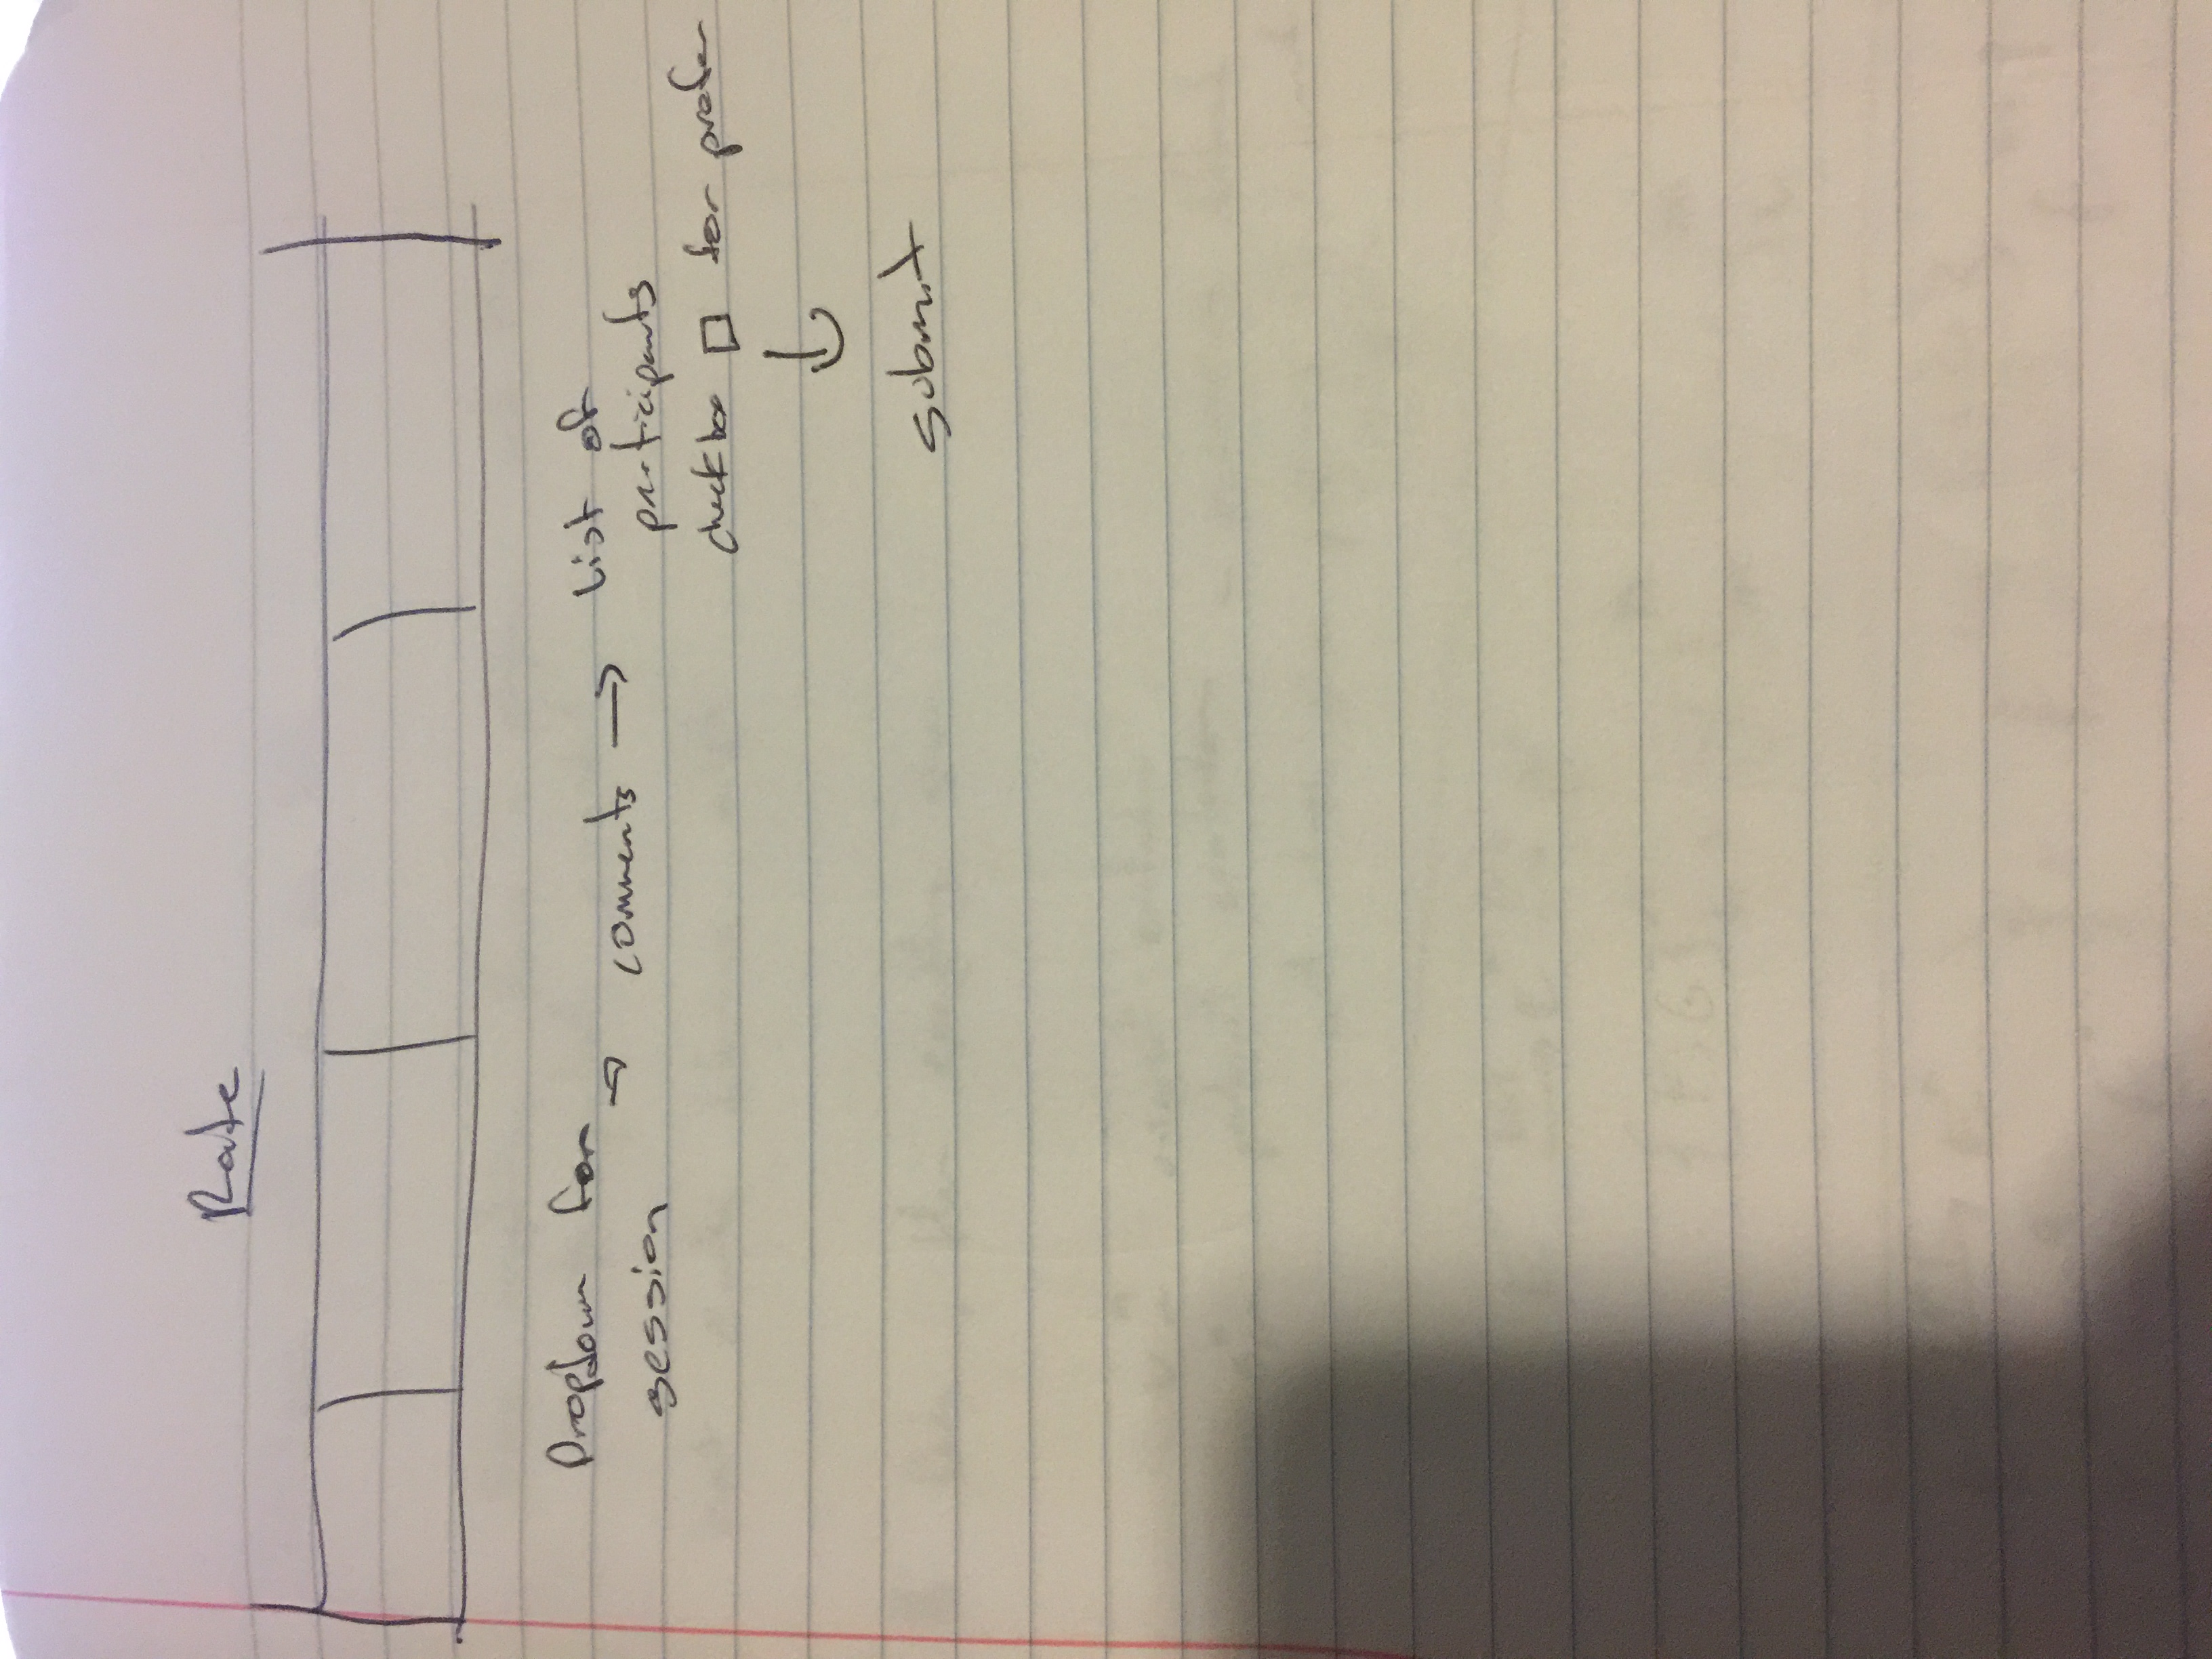 Rate
Dropdown for
session → comments → List of
participants
checkbox □ for prefer
↓
submit